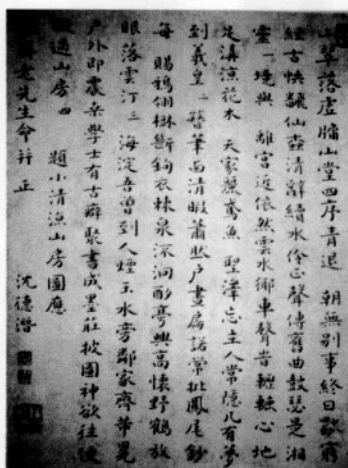 山翠落虛牖山堂四序青退　朝無別事終日歌窮
經古帙翻仙壺清辭續水伶正聲傳舊曲鼓瑟是湘
靈　境與　離宮近依然雲水鄉車聲昔轆轆心地
足清涼花木　天家蔭鳶魚　聖澤忘主人常隱几有夢
到義皇　簪筆西清暇蕭然戶晝扃諾常批鳳尾鈔
每　賜鵝翎樹斷鉤衣棘泉深洞酌亭興高懷野鶴放
眼落雲汀　海淀吾曾到人煙玉水旁鄰家齊華
戶外即農桑學士有古癖聚書成墨莊披圖神欲往便
過山房　題小清漁山房圖應
老先生命并正
沈德潛